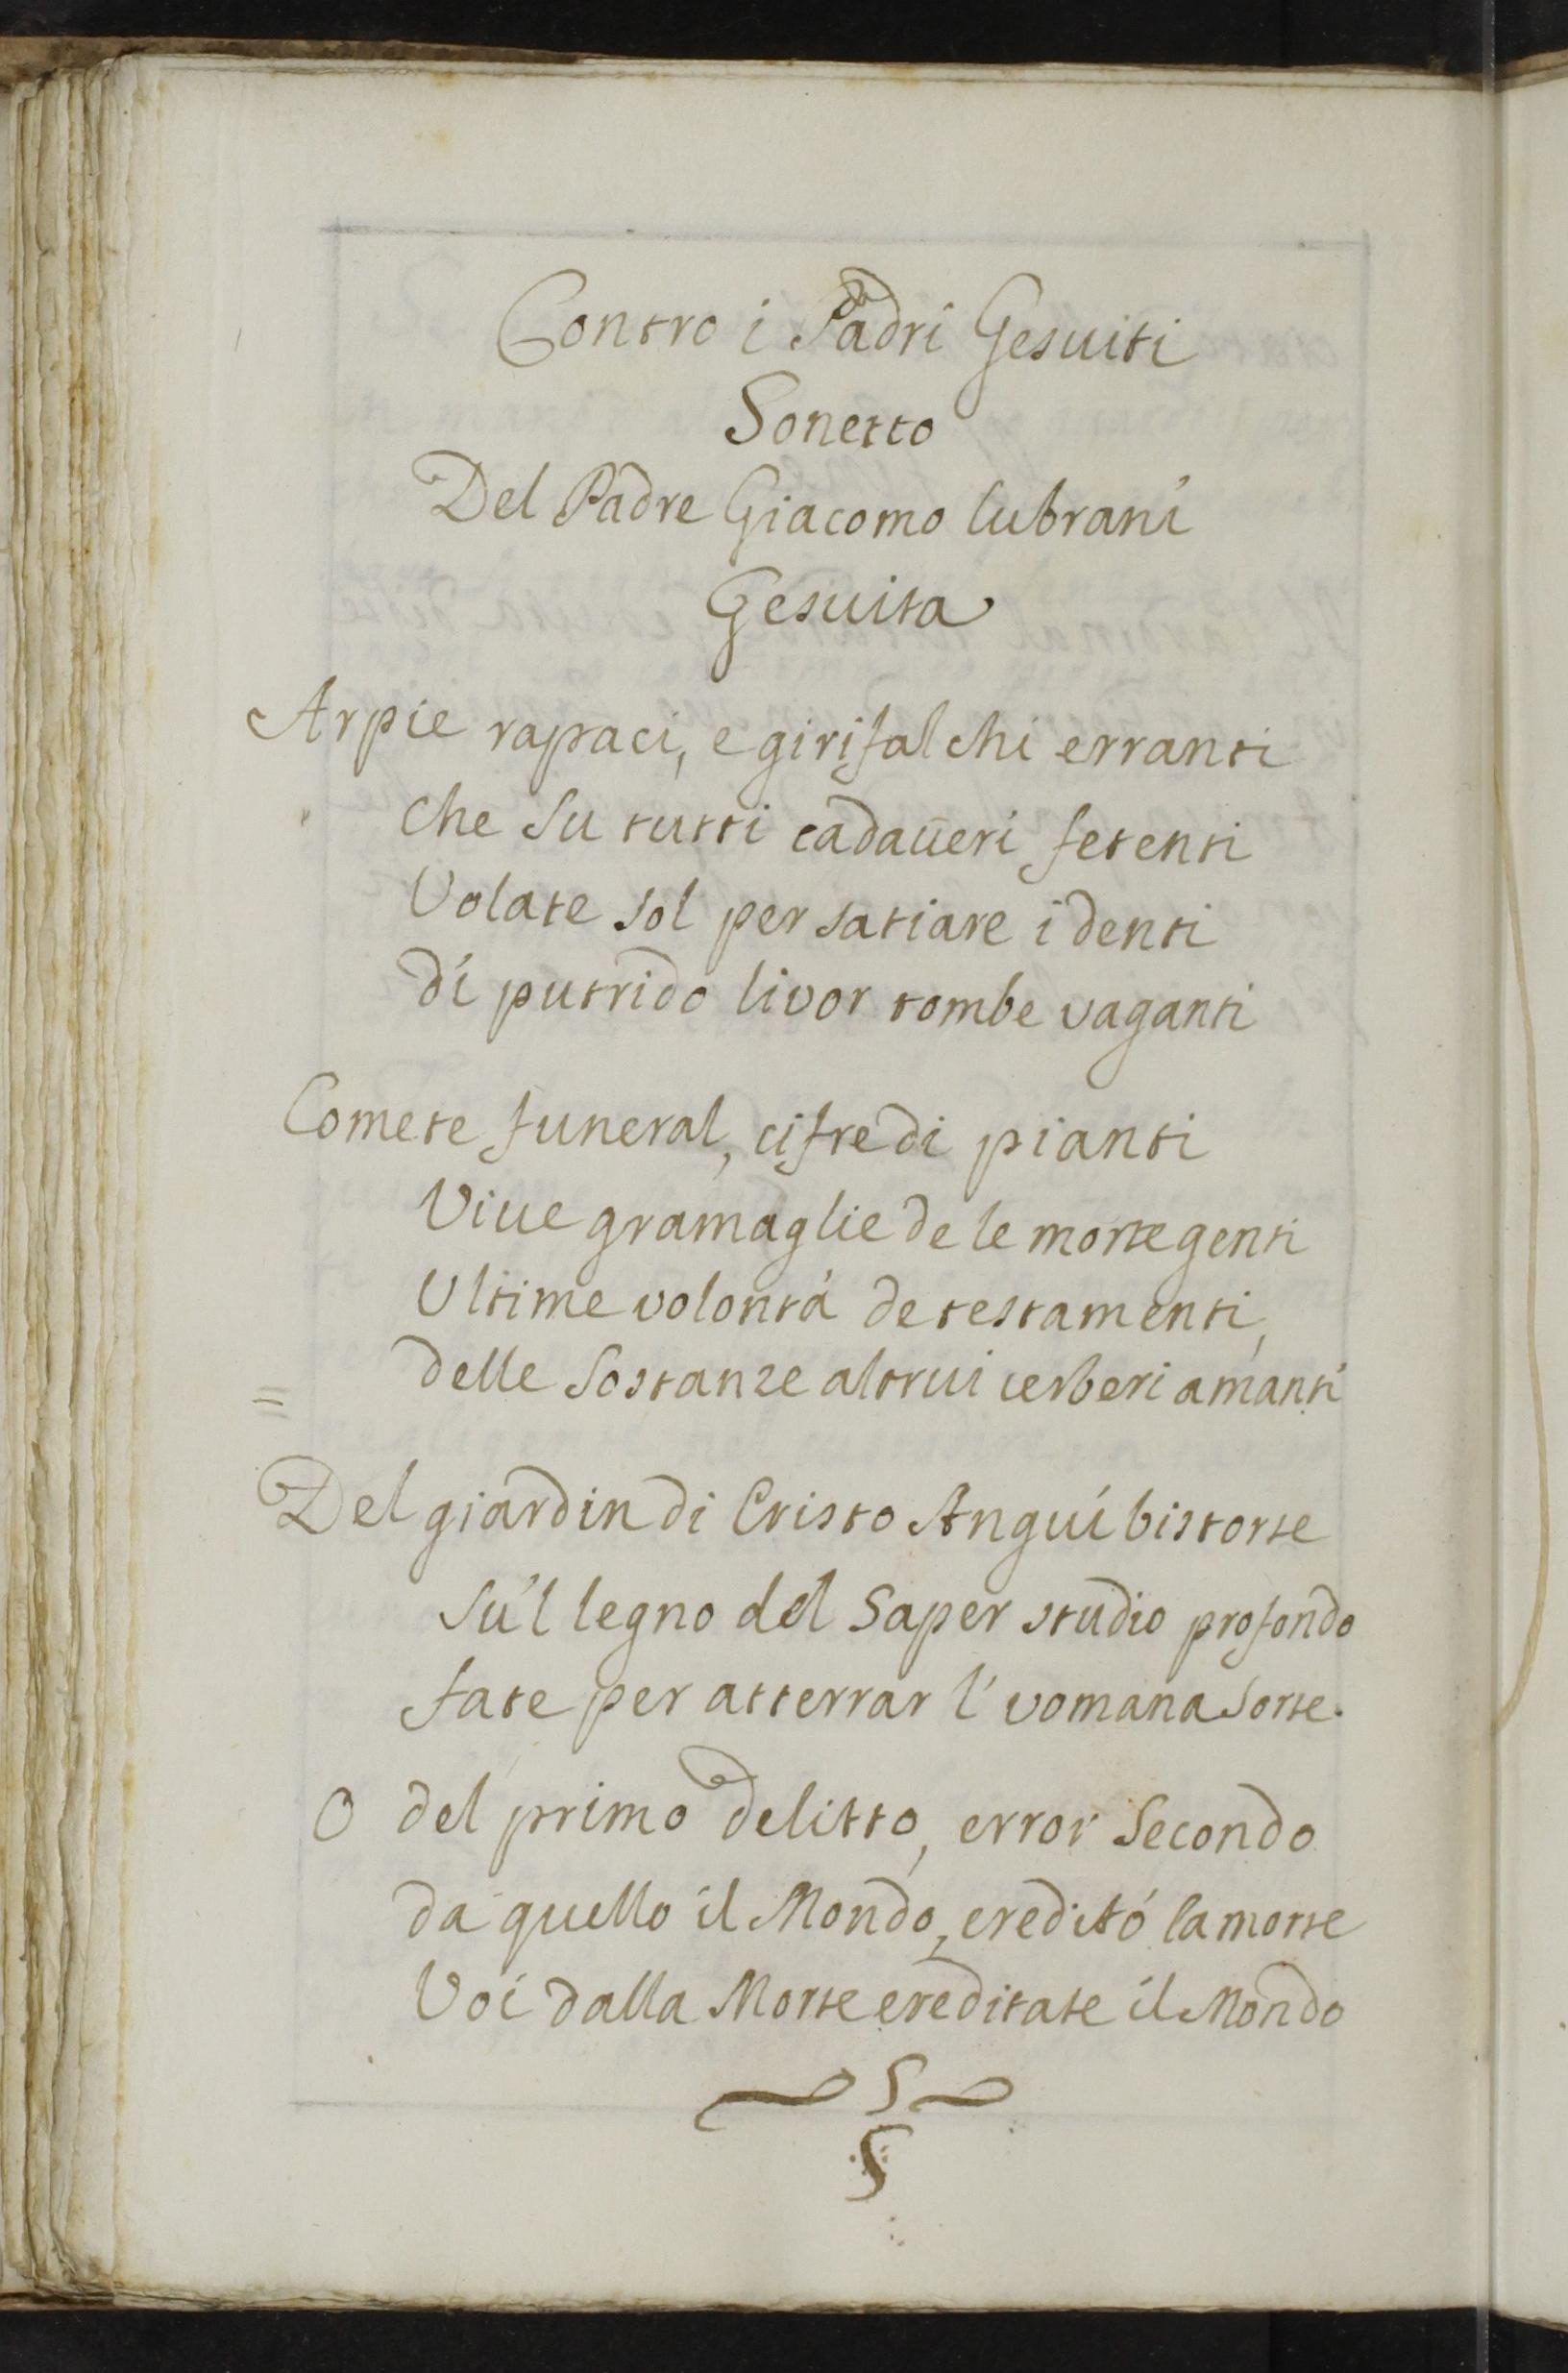 Contro i Padri Gesuiti
Sonetto
Del Padre Giacomo Lubrani
Gesuita
Arpie rapaci, e girifalchi erranti
che su tutti cadaueri fetenti
Volate sol per satiare i denti
di putrido livor tombe vaganti
Comete funeral, cifre di pianti
Viue gramaglie de le morte genti
Ultime volontà de testamenti,
delle sostanze altrui cerberi amanti
=
Del giardin di Cristo Angui bistorte
Su'l legno del Saper studio profondo
fate per atterrar l'uomana sorte.
O del primo delitto, error Secondo
da quello il Mondo, ereditó la morte
Voi dalla Morte ereditate il Mondo